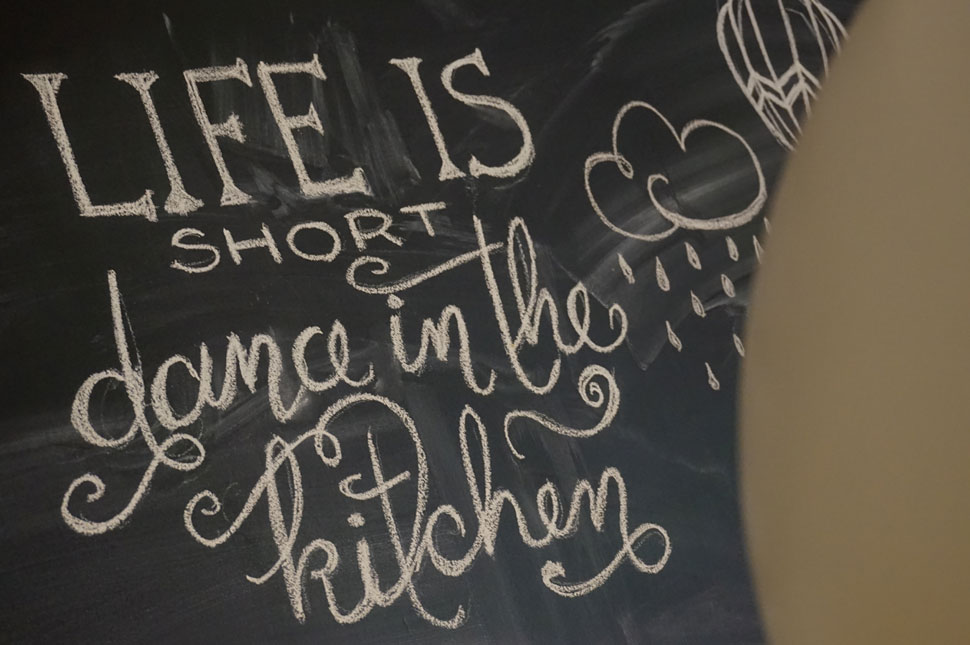 LIFE IS
SHORT
dance in the
kitchen